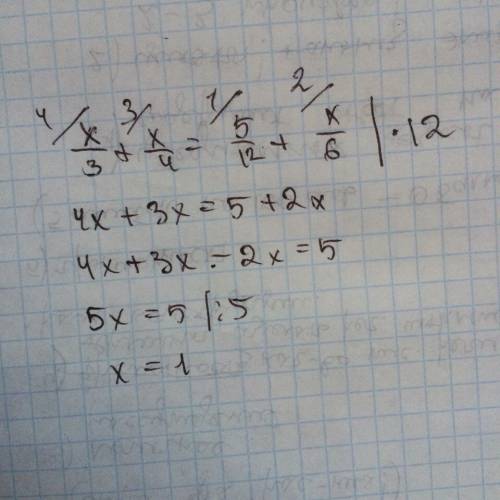 4/ x/3 + 3/ x/4 = 1/ 5/12 + 2/ x/6 | · 12
4x + 3x = 5 + 2x
4x + 3x - 2x = 5
5x = 5 | : 5
x = 1